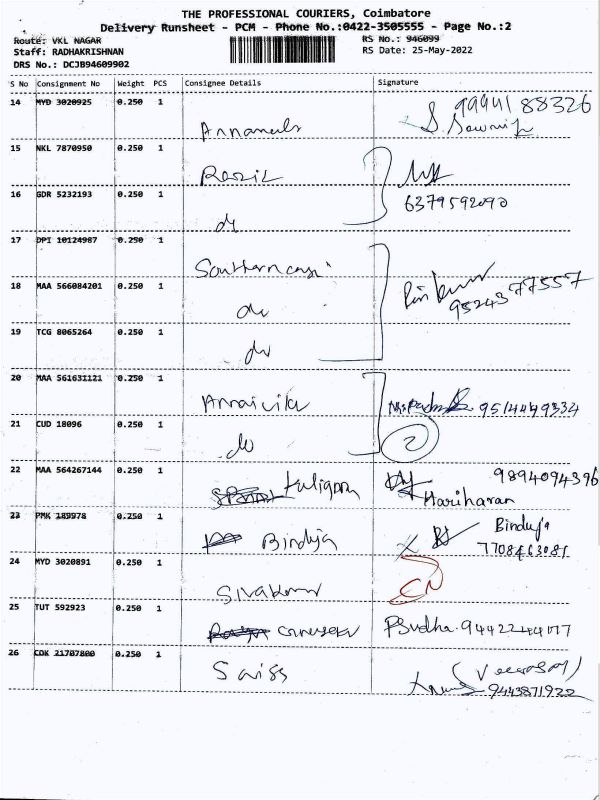 THE PROFESSIONAL COURIERS, Coimbatore
Delivery Runsheet - PCM - Phone No.:0422-3505555 - Page No.:2
Route: VKL NAGAR
RS No.: 946099
Staff: RADHAKRISHNAN
RS Date: 25-May-2022
DRS No.: DCJB94609902
S No Consignment No Weight PCS Consignee Details Signature
14 MYD 3020925 0.250 1
99941 88326
15 NKL 7870950 0.250 1
16 GDR 5232193 0.250 1
6379592090
17 DPI 10124987 0.250 1
18 MAA 566084201 0.250 1 do
9524377557
19 TCG 8065264 0.250 1 do
20 MAA 561631121 0.250 1
9514449334
21 CUD 18096 0.250 1 do 2
22 MAA 564267144 0.250 1
9894094396
Hariharan
23 PMK 189978 0.250 1 Binduja Binduja
7708463081
24 MYD 3020891 0.250 1 Sivakumar
25 TUT 592923 0.250 1 PSudha.
26 CDK 21707800 0.250 1 Swiss
9443871922